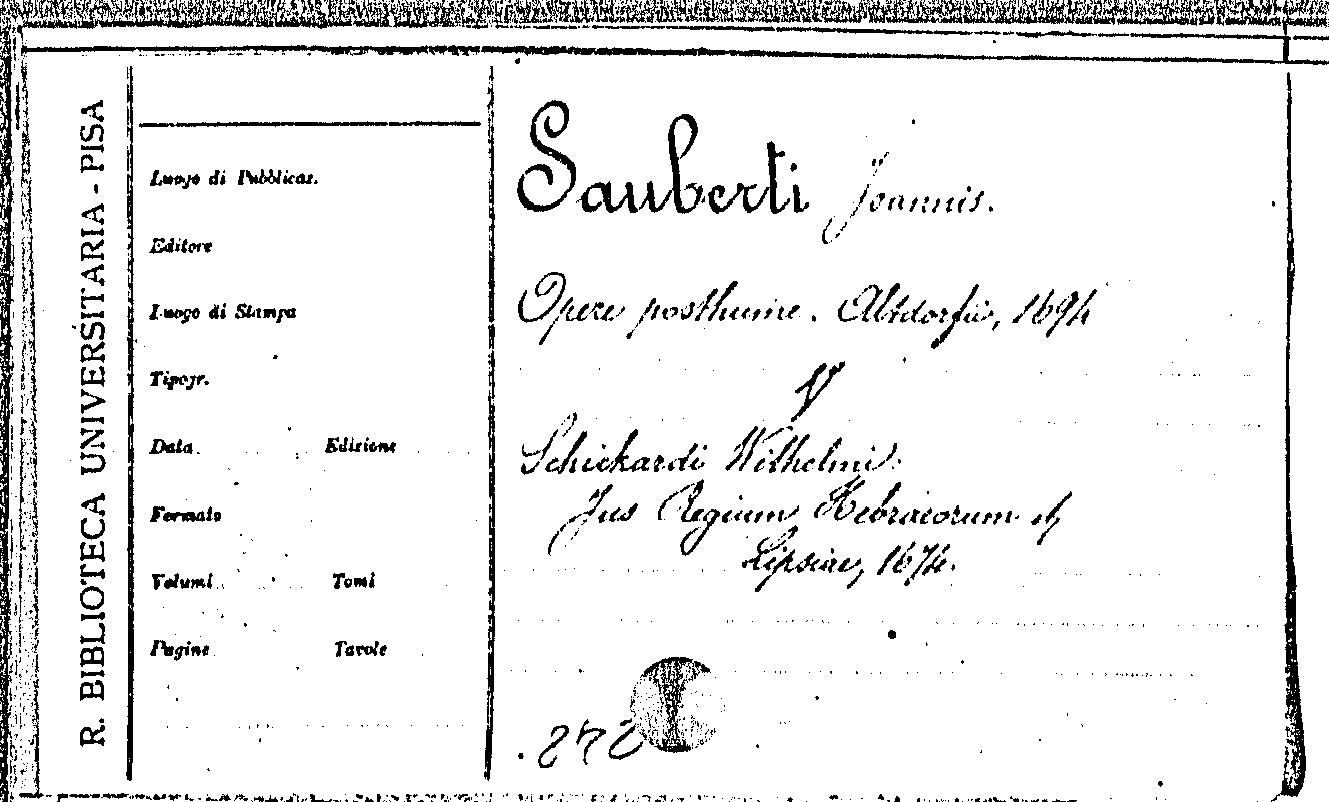 R. BIBLIOTECA UNIVERSITARIA - PISA
Luogo di Pubblicaz.
Editore
Luogo di Stampa
Tipogr.
Data Edizione
Formato
Volumi Tomi
Pagine Tavole
Sauberti Joannis.
Opere posthume. Altdorfii, 1694
V
Schickardi Wilhelmi.
Jus Regium Hebraeorum
Lipsiae, 1674.